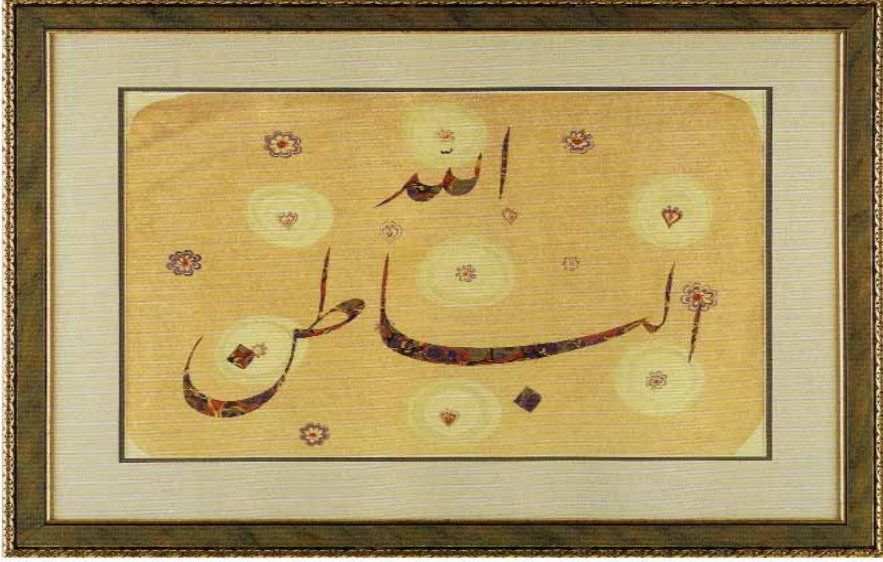 الله
الباطن